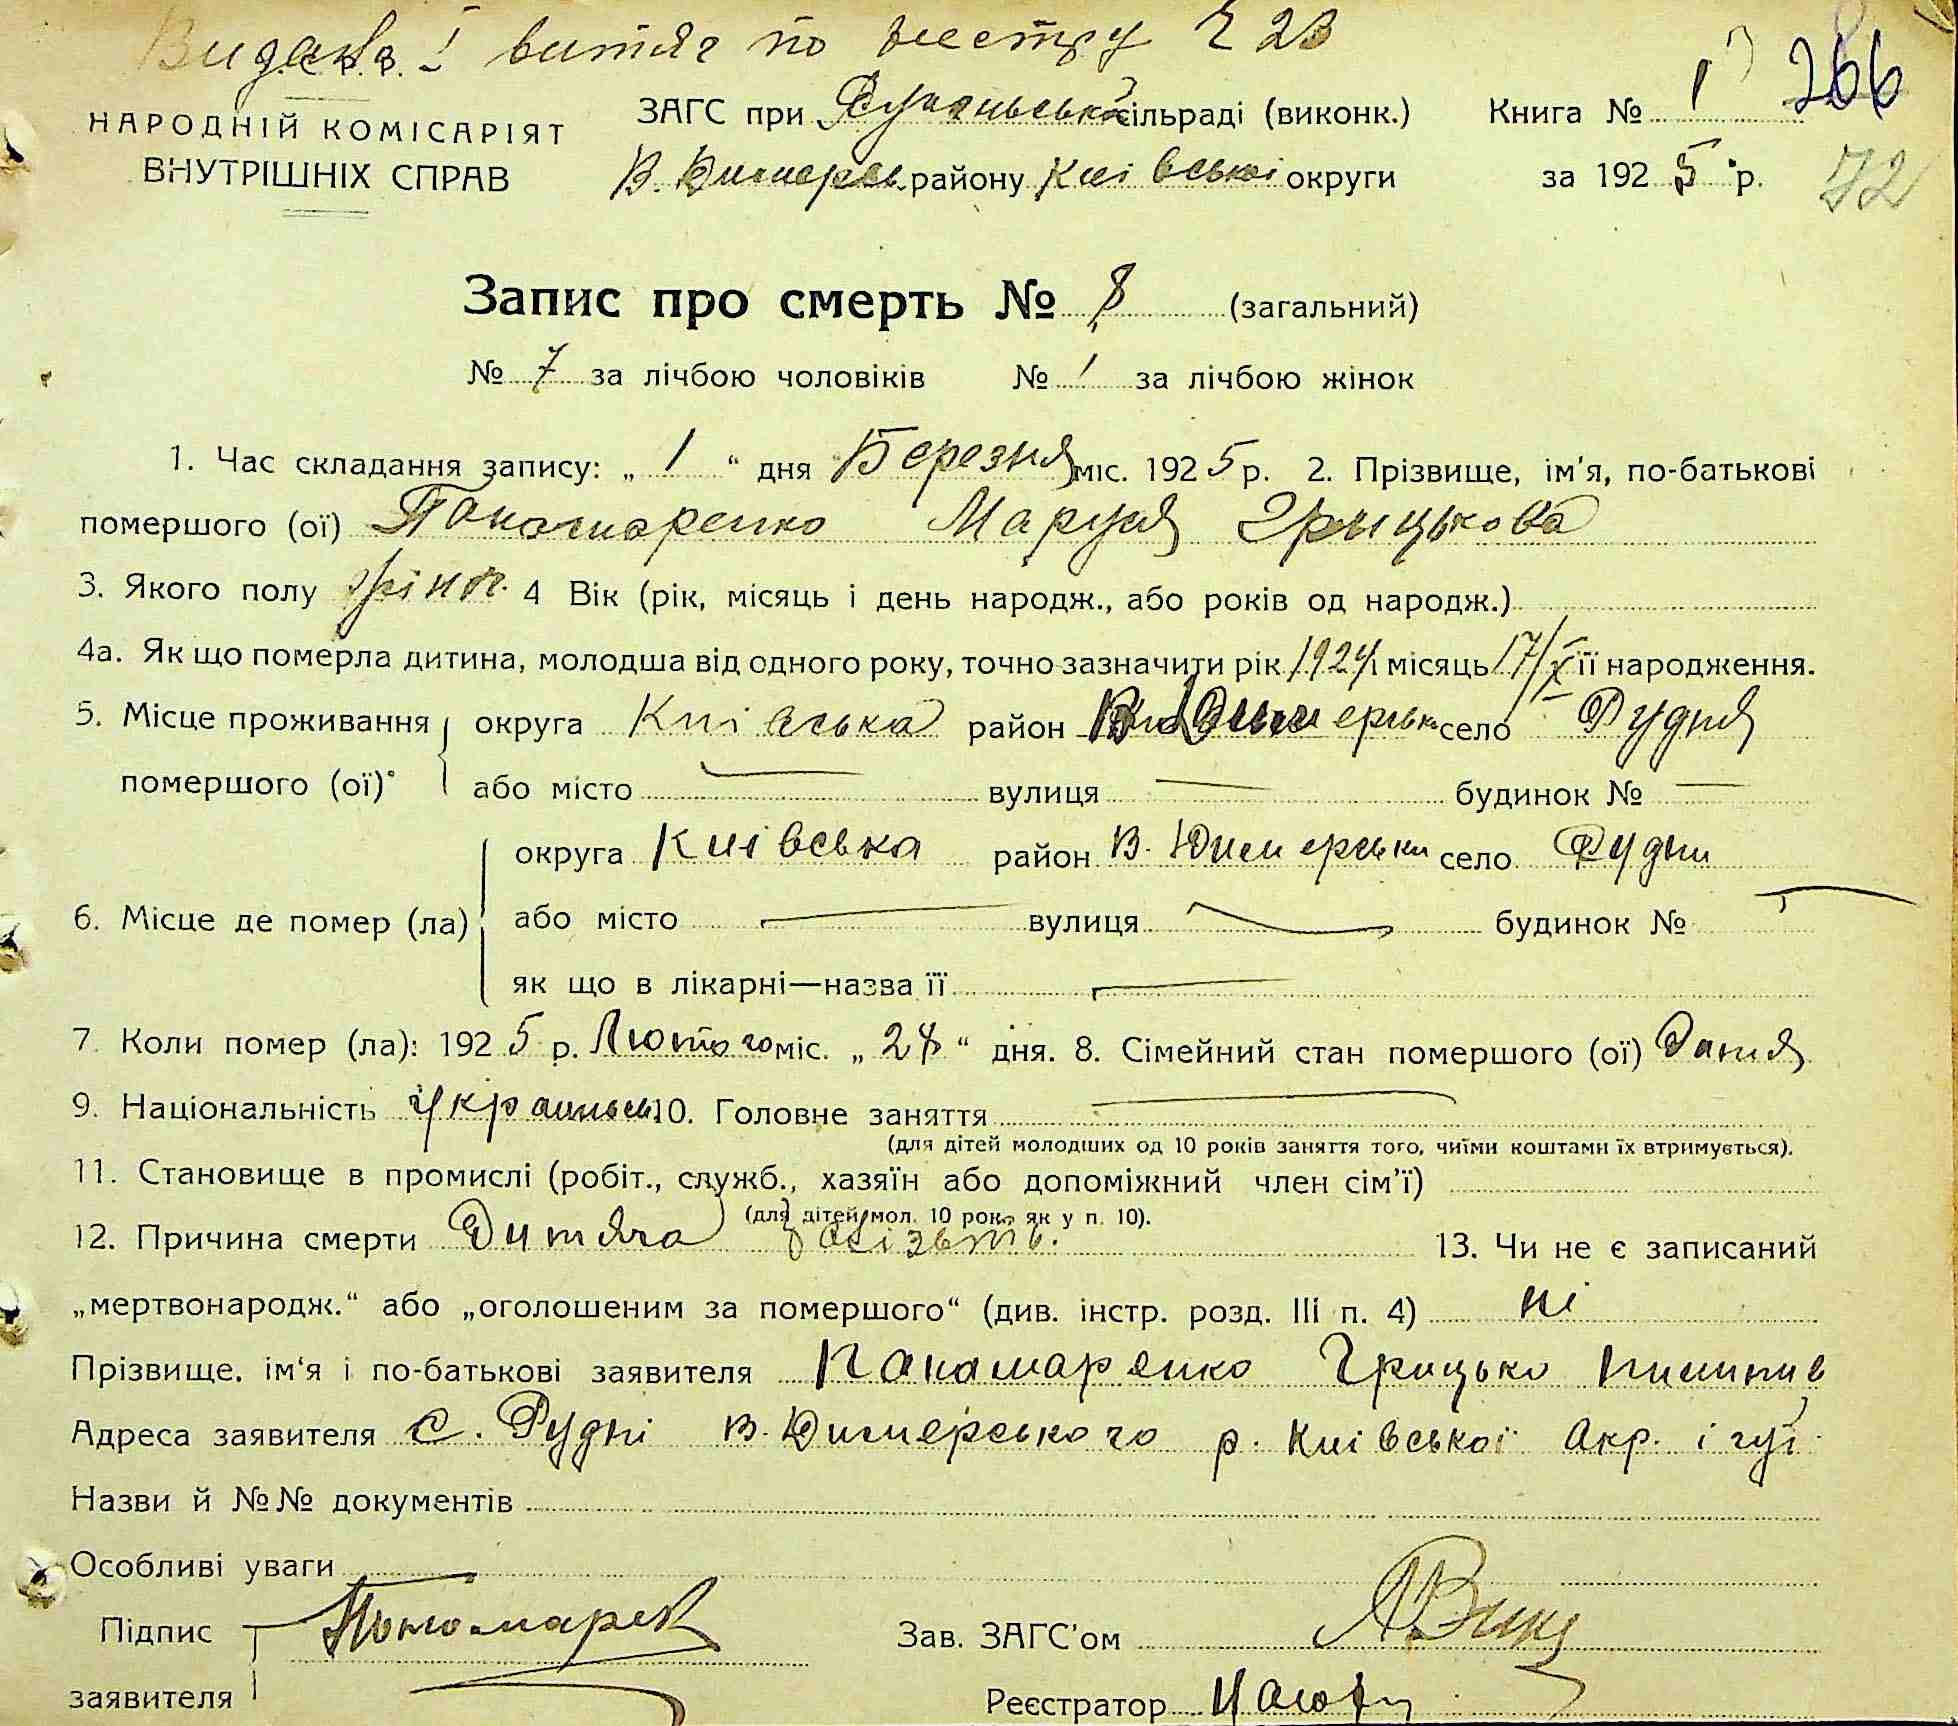 Видана 1 витяг по реестру Ч 23
НАРОДНІЙ КОМІСАРІЯТ ВНУТРІШНІХ СПРАВ
ЗАГС при сільраді (виконк.)
В. Димерськ. району Киівськоі округи
Книга № 1 266
за 1925 р. 72
Запис про смерть № 8 (загальний)
№ 7 за лічбою чоловіків № 1 за лічбою жінок
1. Час складання запису: „ 1 “ дня Березня міс. 1925 р. 2. Прізвище, ім'я, по-батькові
помершого (ої) Пономаренко Маруся Грицькова
3. Якого полу жіноч. 4 Вік (рік, місяць і день народж., або років од народж.)
4а. Як що померла дитина, молодша від одного року, точно зазначити рік 1924 місяць 17/X її народження.
5. Місце проживання помершого (ої) округа Киівська район В Димерськ село Рудня
або місто — вулиця — будинок № —
6. Місце де помер (ла) округа Киівська район В. Димерськи село Рудни
або місто — вулиця — будинок № —
як що в лікарні—назва її —
7. Коли помер (ла): 1925 р. Лютого міс. „ 28 “ дня. 8. Сімейний стан помершого (ої)
9. Національність 10. Головне заняття —
(для дітей молодших од 10 років заняття того, чиїми коштами їх втримується).
11. Становище в промислі (робіт., служб., хазяїн або допоміжний член сім'ї)
(для дітей мол. 10 рок. як у п. 10).
12. Причина смерти Дитяча 13. Чи не є записаний
„мертвонародж.“ або „оголошеним за помершого“ (див. інстр. розд. III п. 4) ні
Прізвище, ім'я і по-батькові заявителя Панамаренко Грицько
Адреса заявителя С. Рудні В. Димерського р. Киівськоі Окр. і губ
Назви й №№ документів
Особливі уваги
Підпис заявителя Пономарен
Зав. ЗАГС'ом
Реєстратор